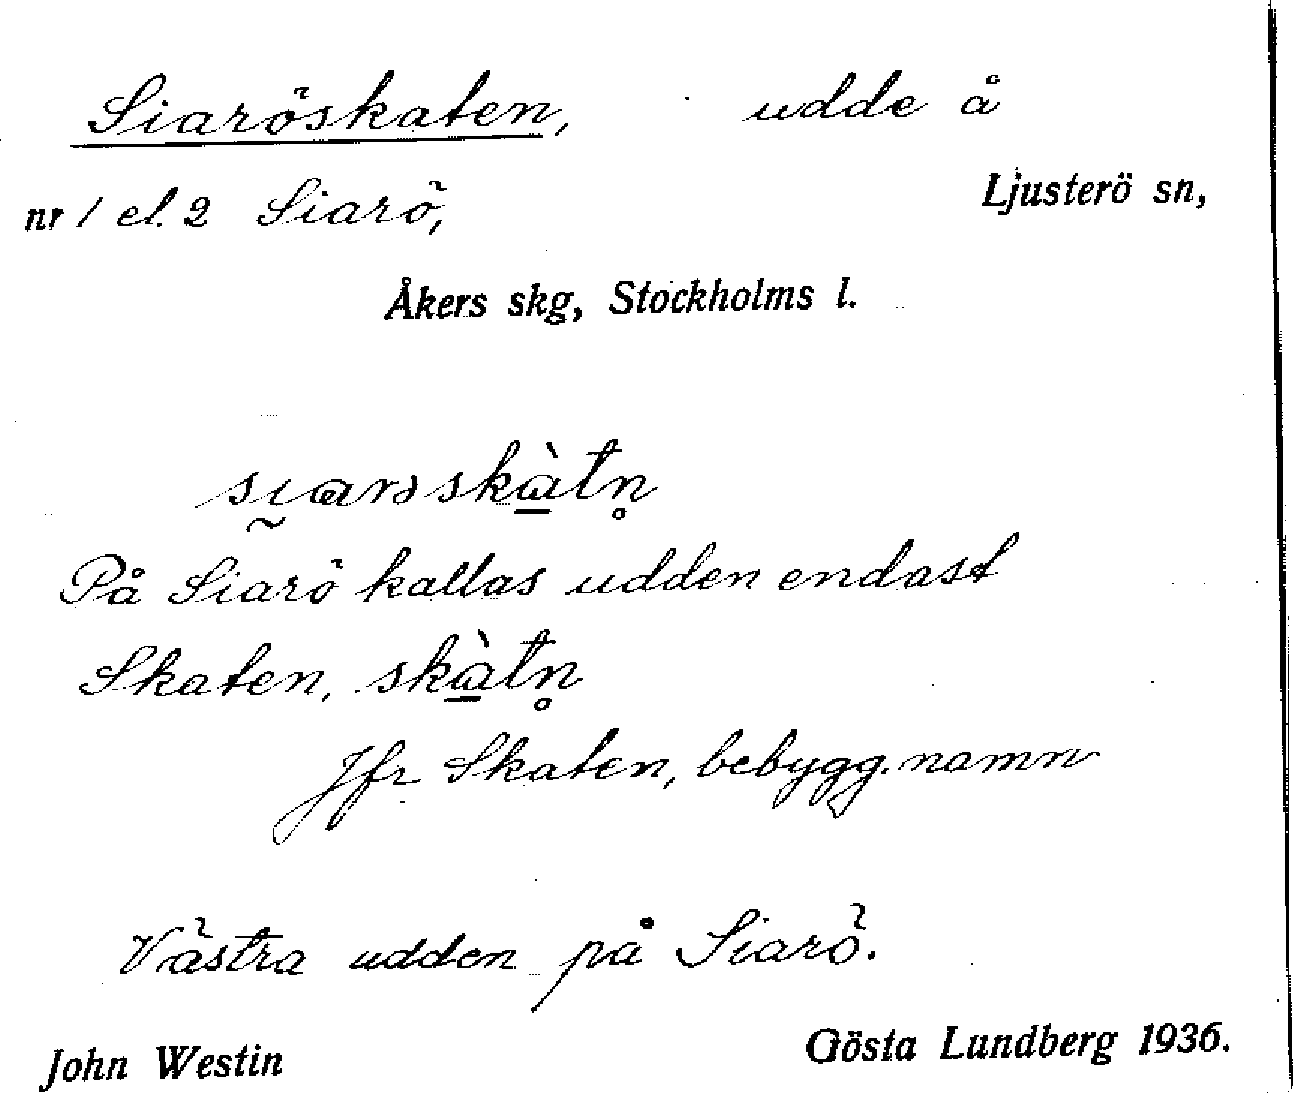 Siaröskaten, udde å
nr 1 el. 2 Siarö, Ljusterö sn,
Åkers skg, Stockholms l.
sı̰arɔskà̱tn̥
På Siarö kallas udden endast
Skaten, skà̱tn̥
Jfr Skaten, bebygg. namn
Västra udden på Siarö.
John Westin Gösta Lundberg 1936.